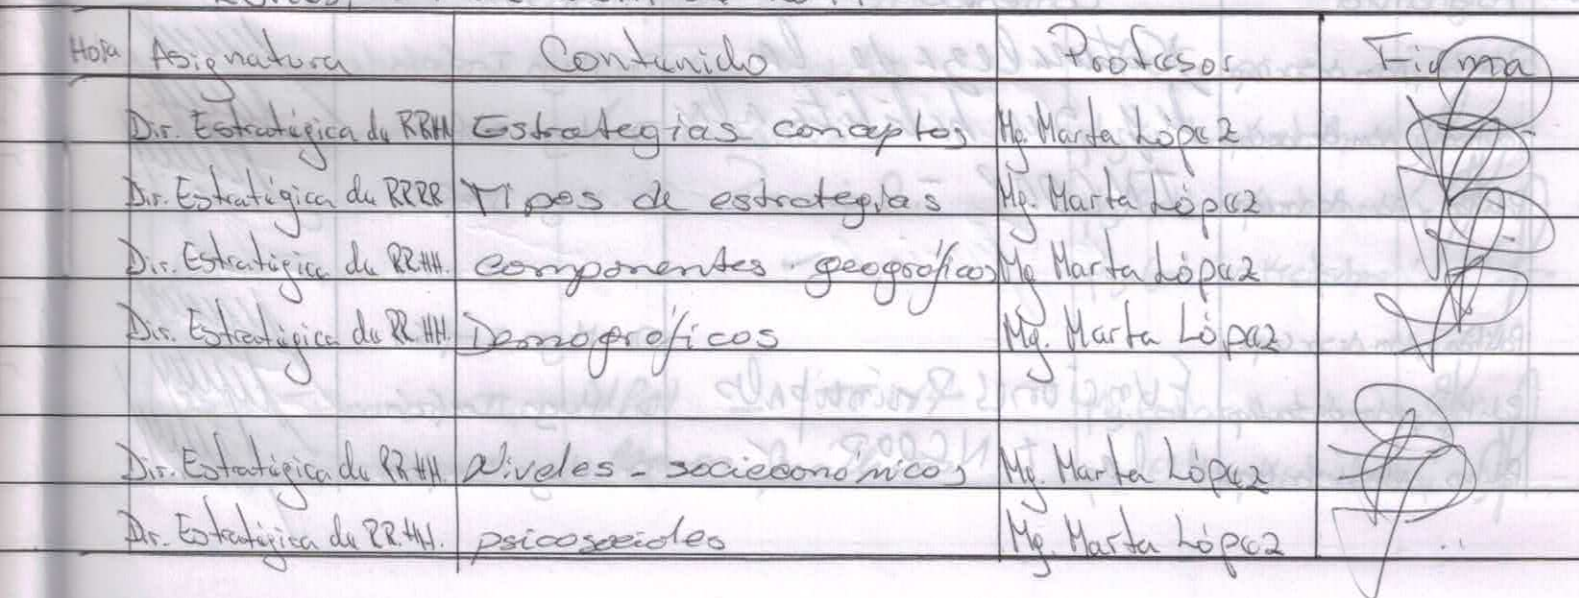 Hora Asignatura Contenido Profesor Firma
Dir. Estratégica de RRHH Estrategias conceptos Mg. Marta López
Dir. Estratégica de RRRR Tipos de estrategias Mg. Marta López
Dir. Estratégica de RR.HH. componentes - geográficos Mg Marta López
Dir. Estratégica de RR.HH. Demográficos Mg. Marta López
Dir. Estratégica de RR.HH. Niveles - socieconómicos Mg. Marta López
Dir. Estratégica de RR.HH. psicosociales Mg. Marta López